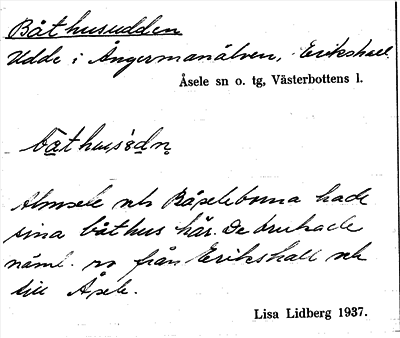 Båthusudden
Udde i Ångermanälven, Erikshall
Åsele sn o. tg, Västerbottens l.
båthusudn
och Båseleborna hade
sina båthus här. De brukade
näml. ro från Erikshall och
till Åsele.
Lisa Lidberg 1937.